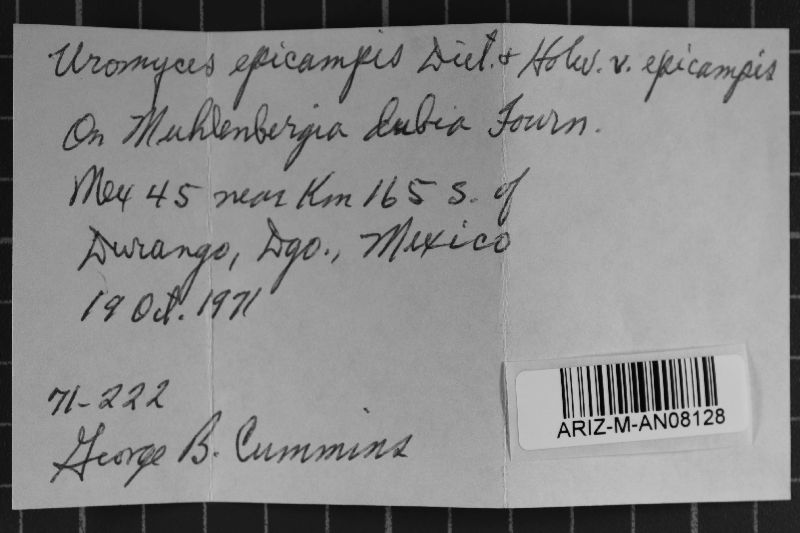 Uromyces epicampis Diet. & Holw. v. epicampis
On Muhlenbergia dubia Fourn.
Mex 45 near Km 165 S. of
Durango, Dgo., Mexico
19 Oct. 1971
71-222
George B. Cummins
ARIZ-M-AN08128